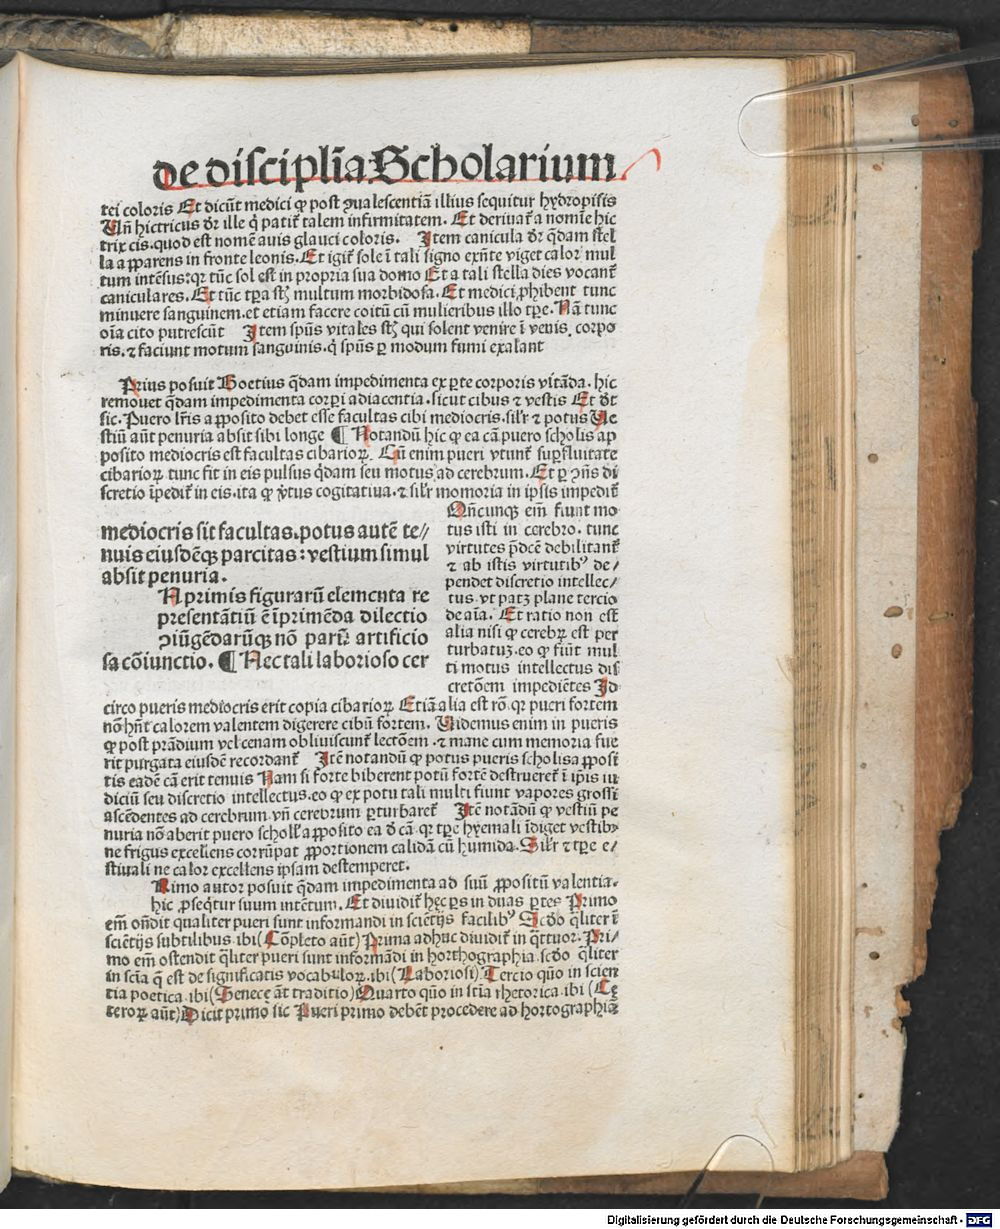 de disciplīa Scholarium
rei coloris Et dicūt medici ꝙ post ꝯualescentiā illius sequitur hydropisis
Vn̄ hictricus dr̄ ille q̄ patit᷑ talem infirmitatem. Et deriuat᷑ a nomīe hic
trix cis. quod est nomē auis glauci coloris. Item canicula dr̄ q̄dam stel
la apparens in fronte leonis. Et igit᷑ sole ī tali signo exn̄te viget calor mul
tum intēsus: qꝛ tūc sol est in propria sua domo Et a tali stella dies vocant᷑
caniculares. Et tūc tp̄a st̄ multum morbidosa. Et medici ꝓhibent tunc
minuere sanguinem. et etiam facere coitū cū mulieribus illo tp̄e. Nā tunc
oīa cito putrescūt Item spūs vitales st̄ qui solent venire ī venis corpo
ris. ⁊ faciunt motum sanguinis. q̄ spūs ꝑ modum fumi exalant
Prius posuit Boetius q̄dam impedimenta ex ꝑte corporis vītāda. hic
remouet q̄dam impedimenta corpī adiacentia. sicut cibus ⁊ vestis Et dt̄
sic. Puero lr̄is apposito debet esse facultas cibi mediocris. silr̄ ⁊ potus Ue
stiū aūt penuria absit sibi longe ¶ Notandū hic ꝙ ea cā puero scholis ap
posito mediocris est facultas cibarioꝝ. Cū enim pueri vtunt᷑ suꝑfluitate
cibarioꝝ tunc fit in eis pulsus q̄dam seu motus ad cerebrum. Et ꝑ ꝯn̄s di
scretio īpedit᷑ in eis. ita ꝙ v̄tus cogitatiua. ⁊ silr̄ momoria in ipsis impedit᷑
mediocris sit facultas. potus autē te//
nuis eiusdēqꝫ parcitas: vestium simul
absit penuria.
A primis figurarū elementa re
presentātiū ē īprimēda dilectio
ꝯiūgēdarūqꝫ nō parū artificio
sa cōiunctio. ¶ Nec tali laborioso cer
Qn̄cunqꝫ em̄ fiunt mo
tus isti in cerebro. tunc
virtutes p̄dcē debilitant᷑
⁊ ab istis virtutibꝰ de/
pendet discretio intellec/
tus. vt patꝫ plane tercio
de aīa. Et ratio non est
alia nisi ꝙ cerebꝝ est per
turbatuꝫ. eo ꝙ fiūt mul
ti motus intellectus dis
cretōem impediētes Id
circo pueris mediocris erit copia cibarioꝝ Etiā alia est rō. qꝛ pueri fortem
nō hn̄t calorem valentem digerere cibū fortem. Uidemus enim in pueris
ꝙ post prādium vel cenam obliuiscunt᷑ lectōem. ⁊ mane cum memoria fue
rit purgata eiusdē recordant᷑ Itē notandū ꝙ potus pueris scholis apposi
tis eadē cā erit tenuis Nam si forte biberent potū fortē destrueret᷑ ī ip̄is iu
dicium seu discretio intellectus. eo ꝙ ex potu tali multi fiunt vapores grossi
ascēdentes ad cerebrum. vn̄ cerebrum ꝑturbaret᷑ Itē notādū ꝙ vestiū pe
nuria nō aberit puero scholis apposito ea d̄ cā. qꝛ tp̄e hyemali īdiget vestibꝰ
ne frigus excellens corrūpat ꝓportionem calidā cū humida. Silr̄ ⁊ tp̄e e/
stiuali ne calor excellens ipsam destemperet.
Rimo autor posuit q̄dam impedimenta ad suū ꝓpositū valentia.
hic ꝓseqt᷑ur suum intētum. Et diuidit᷑ hec ꝑs in duas ꝑtes Primo
em̄ on̄dit qualiter pueri sunt informandi in sciētijs facilibꝰ Scd̄o q̄liter ī
sciētijs subtilibus ibi (Cōpleto aūt) Prima adhuc diuidit᷑ in q̄ttuor. Pri/
mo em̄ ostendit q̄liter pueri sunt informādi in horthographia. scd̄o q̄liter
in scīa q̄ est de significatis vocabuloꝝ. ibi (Laboriosi) Tercio quō in scien
tia poetica. ibi (Senece āt traditio) Quarto quō in scīa rhetorica ibi (Ce
teroꝝ aūt) Dicit primo sic Pueri primo debēt procedere ad hortographiā
Digitalisierung gefördert durch die Deutsche Forschungsgemeinschaft - DFG